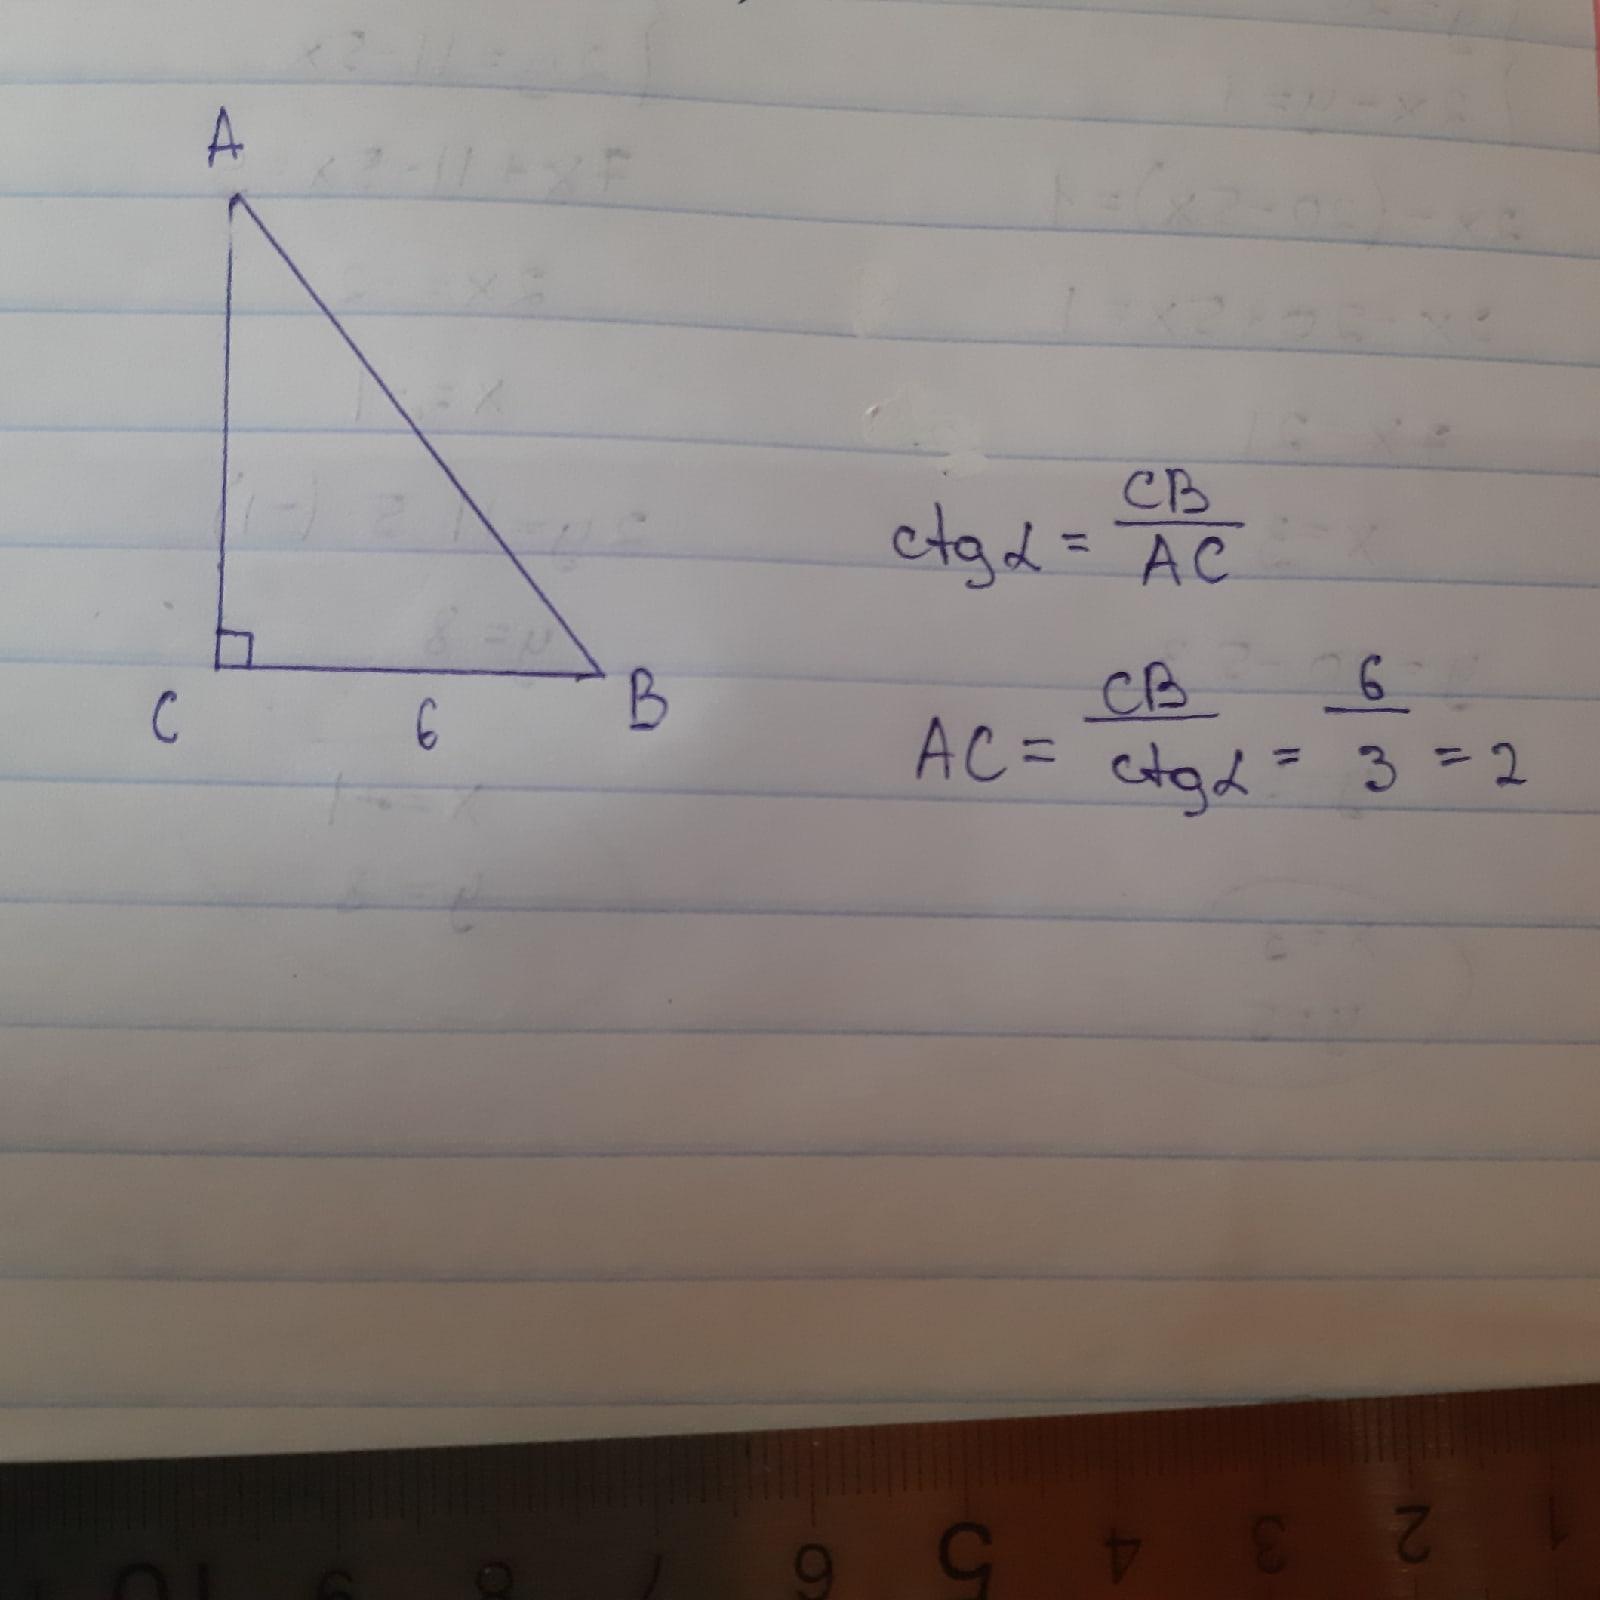 A
C
6
B
ctg α = CB/AC
AC = CB/ctg α = 6/3 = 2
10 9 8 7 6 5 4 3 2 1